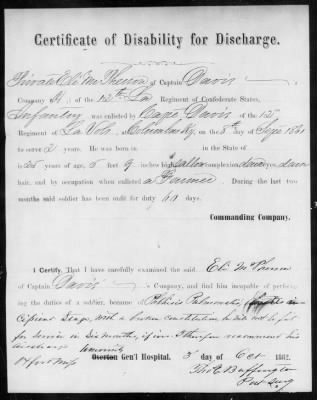 Certificate of Disability for Discharge.
Private Eli McPherson of Captain Davis
Company H. of the 12th La Regiment of Confederate States,
Infantry, was enlisted by Capt Davis of the 12th
Regiment of La Vols, at Columbus Ky on the 5th day of Sept 1861
to serve 2 years. He was born in in the State of
is 25 years of age, 5 feet 9 inches high, sallow complexion, dark eyes, dark
hair, and by occupation when enlisted a Farmer. During the last two
months said soldier has been unfit for duty 60 days.
Commanding Company.
I Certify, That I have carefully examined the said Eli McPherson
of Captain Davis Company, and find him incapable of perform-
ing the duties of a soldier, because of Phthisis Pulmonalis, in-
cipient Stage, with a broken constitution, he will not be fit
for service in six months, if ever. I therefore recommend his
discharge Overton Gen'l Hospital. 3d day of Oct 1862.
Miss Thos E Buffington
Post Surg